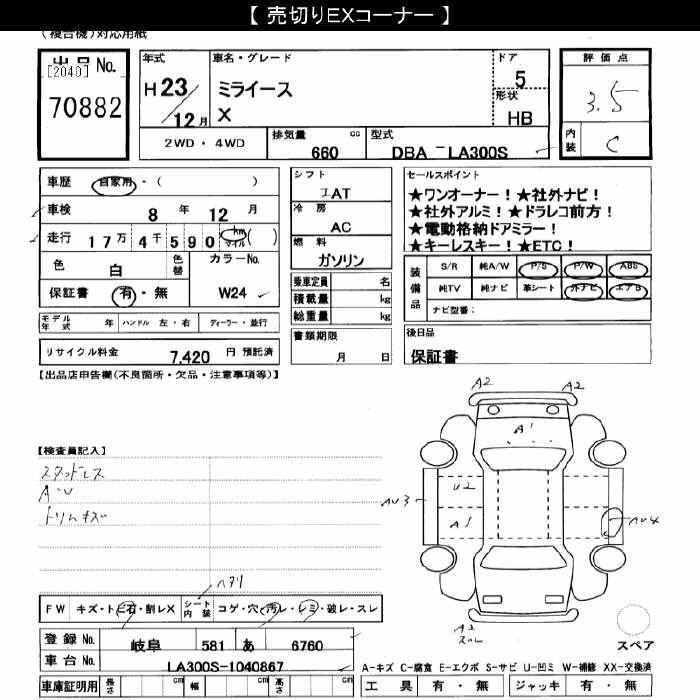 【 売切りEXコーナー 】
(複合機)対応用紙
出品 No.
[2040]
70882
年式
H 23/12 月
車名・グレード
ミライース
X
ドア
5
形状
HB
評価点
3.5
内装
C
2WD・4WD
排気量
660
cc
型式
DBA － LA300S
車歴
自家用・( )
車検
8 年 12 月
走行
17万 4千 590 km マイル ( )
色
白
色替
カラーNo.
W24
保証書
有・無
シフト
IAT
冷房
AC
燃料
ガソリン
乗車定員 名
積載量 kg
総重量 kg
書類期限
月 日
セールスポイント
★ワンオーナー！★社外ナビ！
★社外アルミ！★ドラレコ前方！
★電動格納ドアミラー！
★キーレスキー！★ETC！
装備品
S/R 純A/W P/S P/W ABS
純TV 純ナビ 革シート 外ナビ エアB
ナビ型番：
後日品
保証書
モデル年式 年 ハンドル 左・右 ディーラー・並行
リサイクル料金 7,420 円 預託済
【出品店申告欄(不良箇所・欠品・注意事項等)】
【検査員記入】
スタッドレス
A・U
トリムキズ
ヘタリ
A2
A2
A1
U2
A1
AU3
AU4
A2
スレ
スペア
FW キズ・トビ石・割レX シート内装 コゲ・穴・汚レ・シミ・破レ・スレ
登録 No. 岐阜 581 あ 6760
車台 No. LA300S-1040867
車庫証明用 長さ cm 幅 cm 高さ cm
A-キズ C-腐食 E-エクボ S-サビ U-凹ミ W-補修 XX-交換済
工具 有・無 ジャッキ 有・無